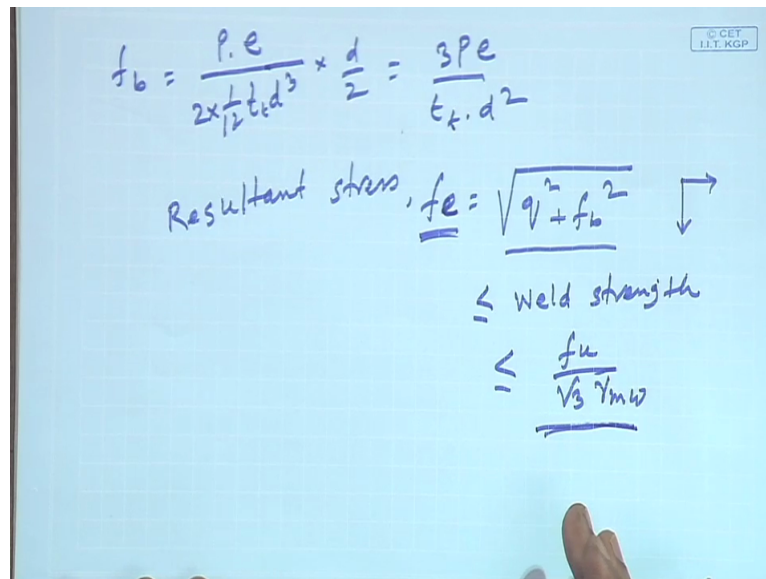 © CET
I.I.T. KGP
f_b = P.e / (2×1/12 t_t d³) × d/2 = 3Pe / (t_t . d²)
Resultant stress, fe = √(q² + f_b²)
≤ Weld strength
≤ fu / (√3 γmw)